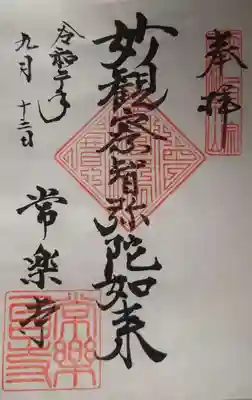 奉拝
妙観察智弥陀如来
令和二年
九月十三日
常楽寺
常樂寺